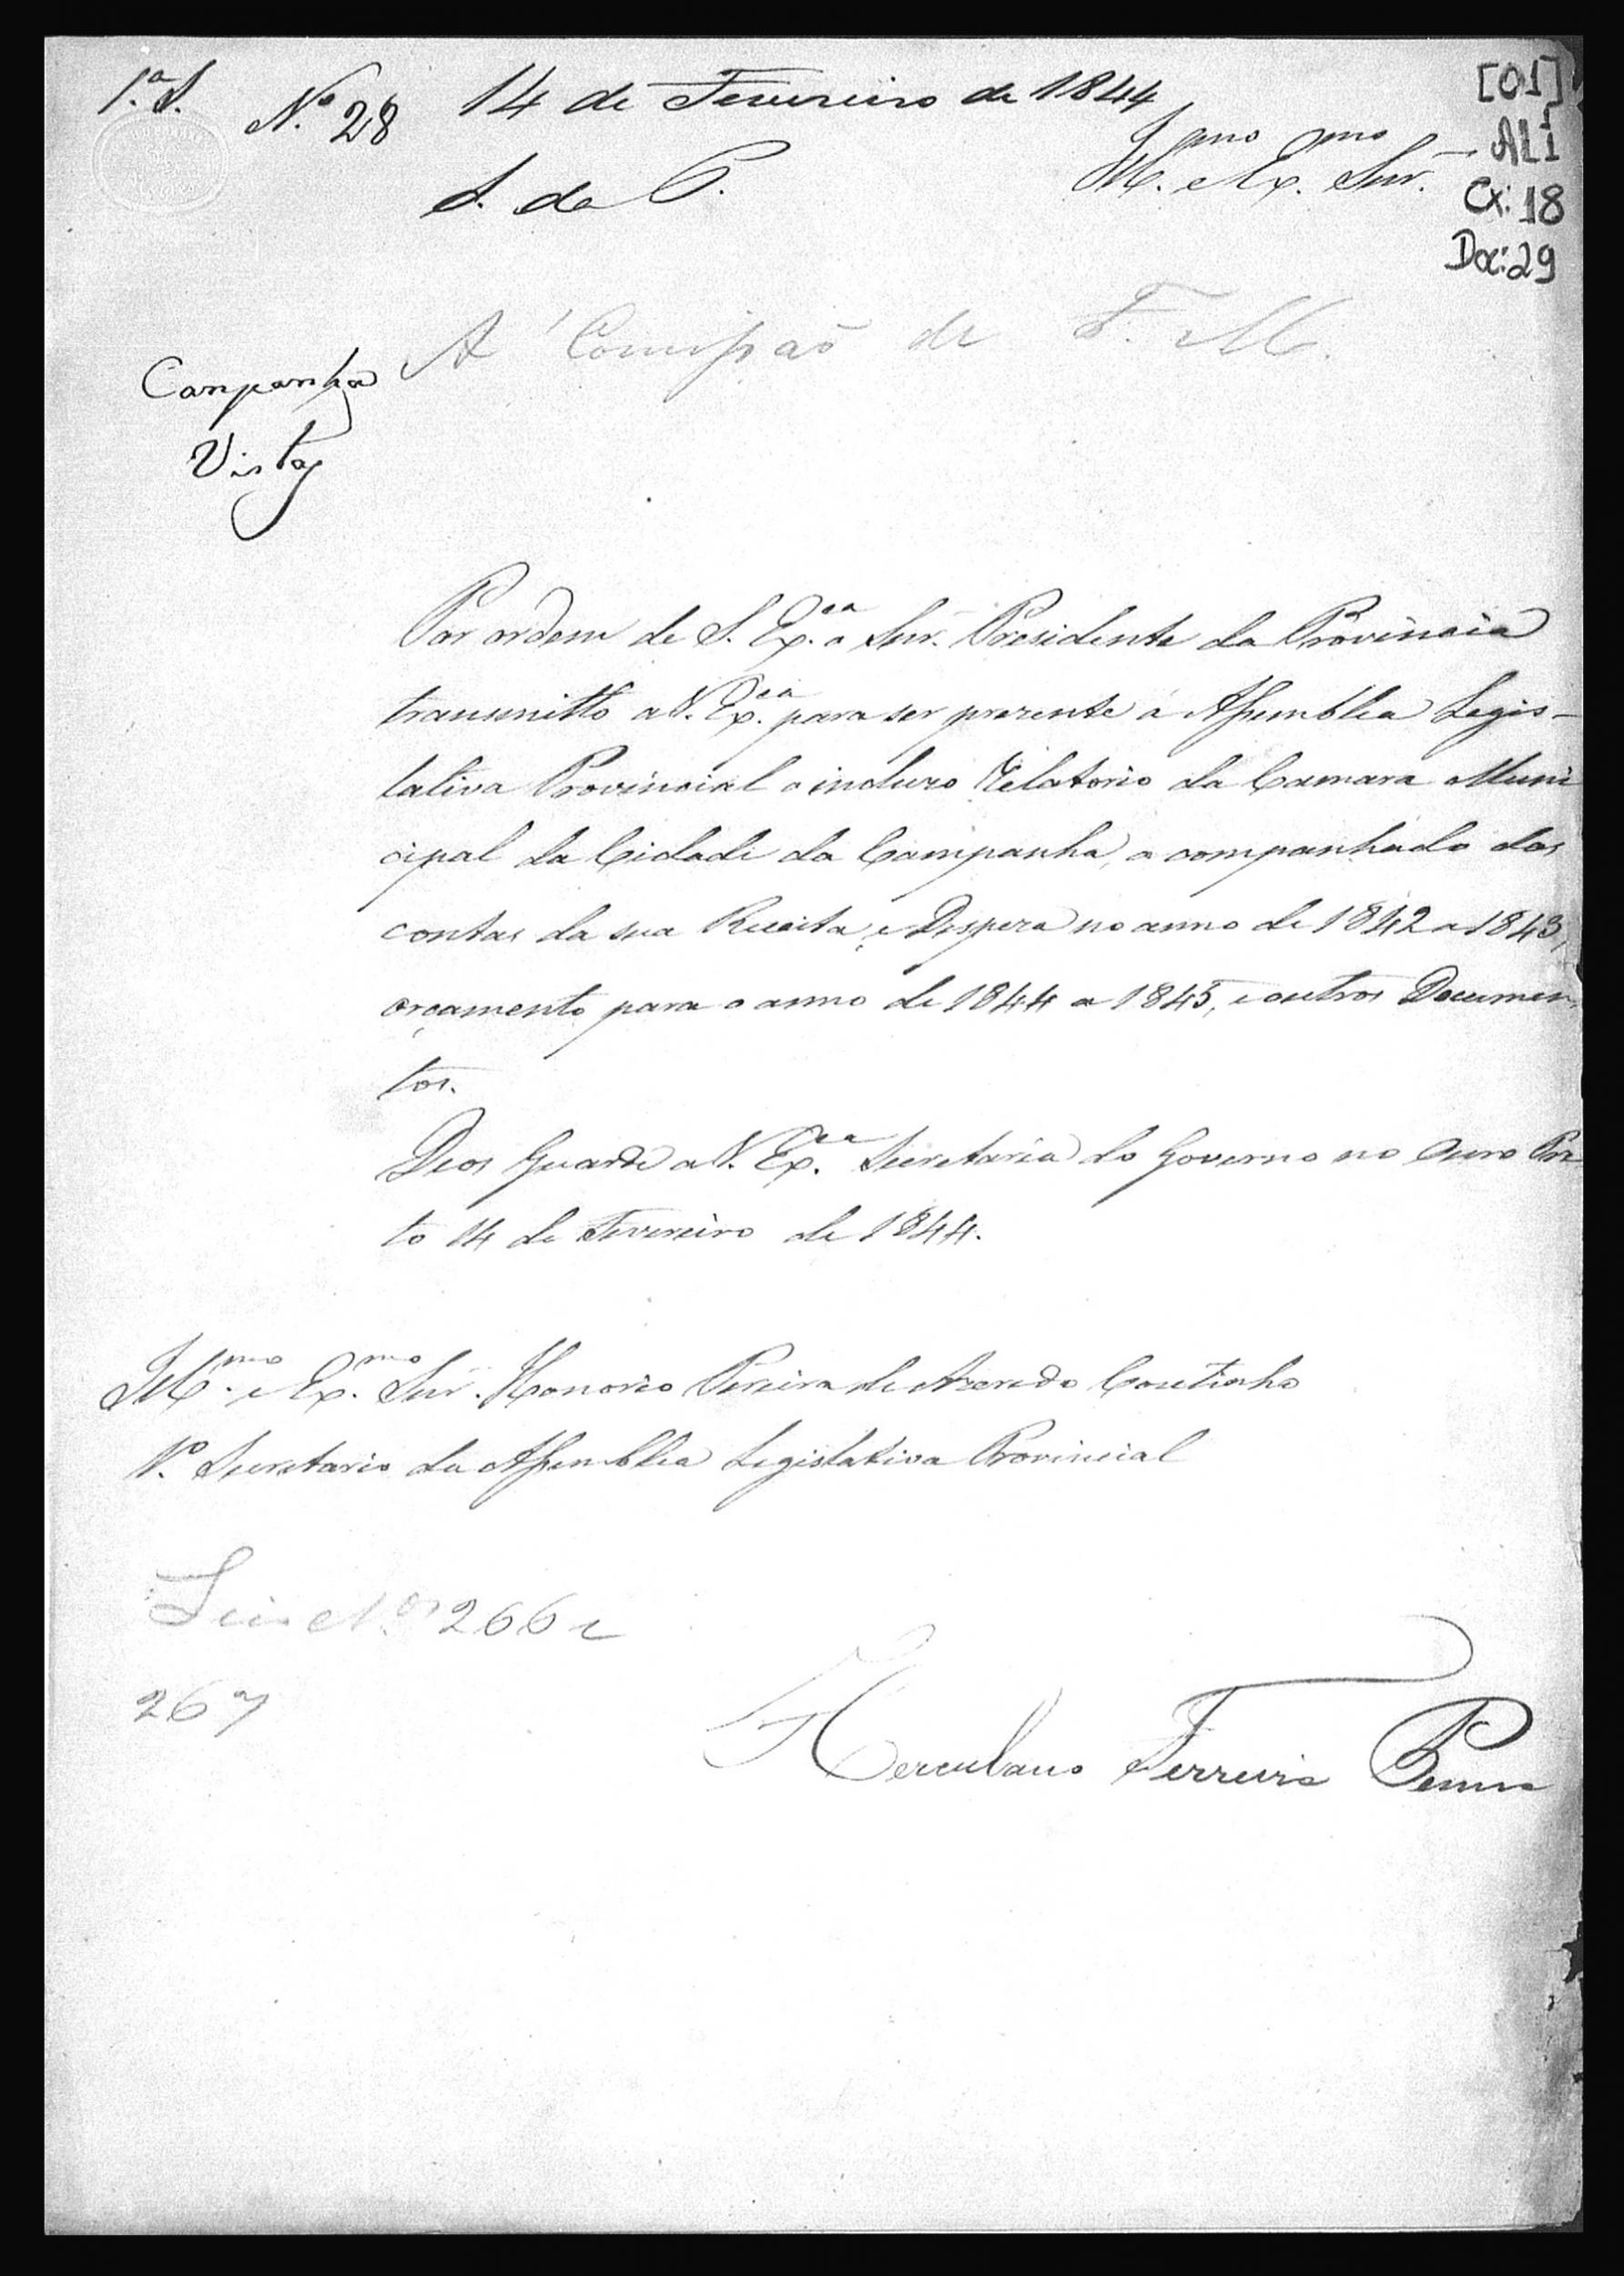 1.ª S. N.º 28 14 de Fevereiro de 1844
[01]
AL1
Cx: 18
Doc: 29
Ill.mo e Ex.mo Snr.
S. da P.
A' Comissaõ de F. M.
Campanha
Vista
Por ordem de S. Ex.cia o Snr. Presidente da Provincia
transmitto a V. Ex.cia para ser prezente á Assemblea Legis-
lativa Provincial o incluzo Relatorio da Camara Muni
cipal da Cidade da Campanha, acompanhado das
contas da sua Receita, e Despeza no anno de 1842 a 1843,
orçamento para o anno de 1844 a 1845, e outros Documen
tos.
Deos Guarde a V. Ex.cia Secretaria do Governo no Ouro Pre
to 14 de Fevereiro de 1844.
Ill.mo e Ex.mo Snr. Honorio Pereira de Azeredo Coutinho
1.º Secretario da Assemblea Legislativa Provincial
Leis N.os 266 e
267
Herculano Ferreira Penna